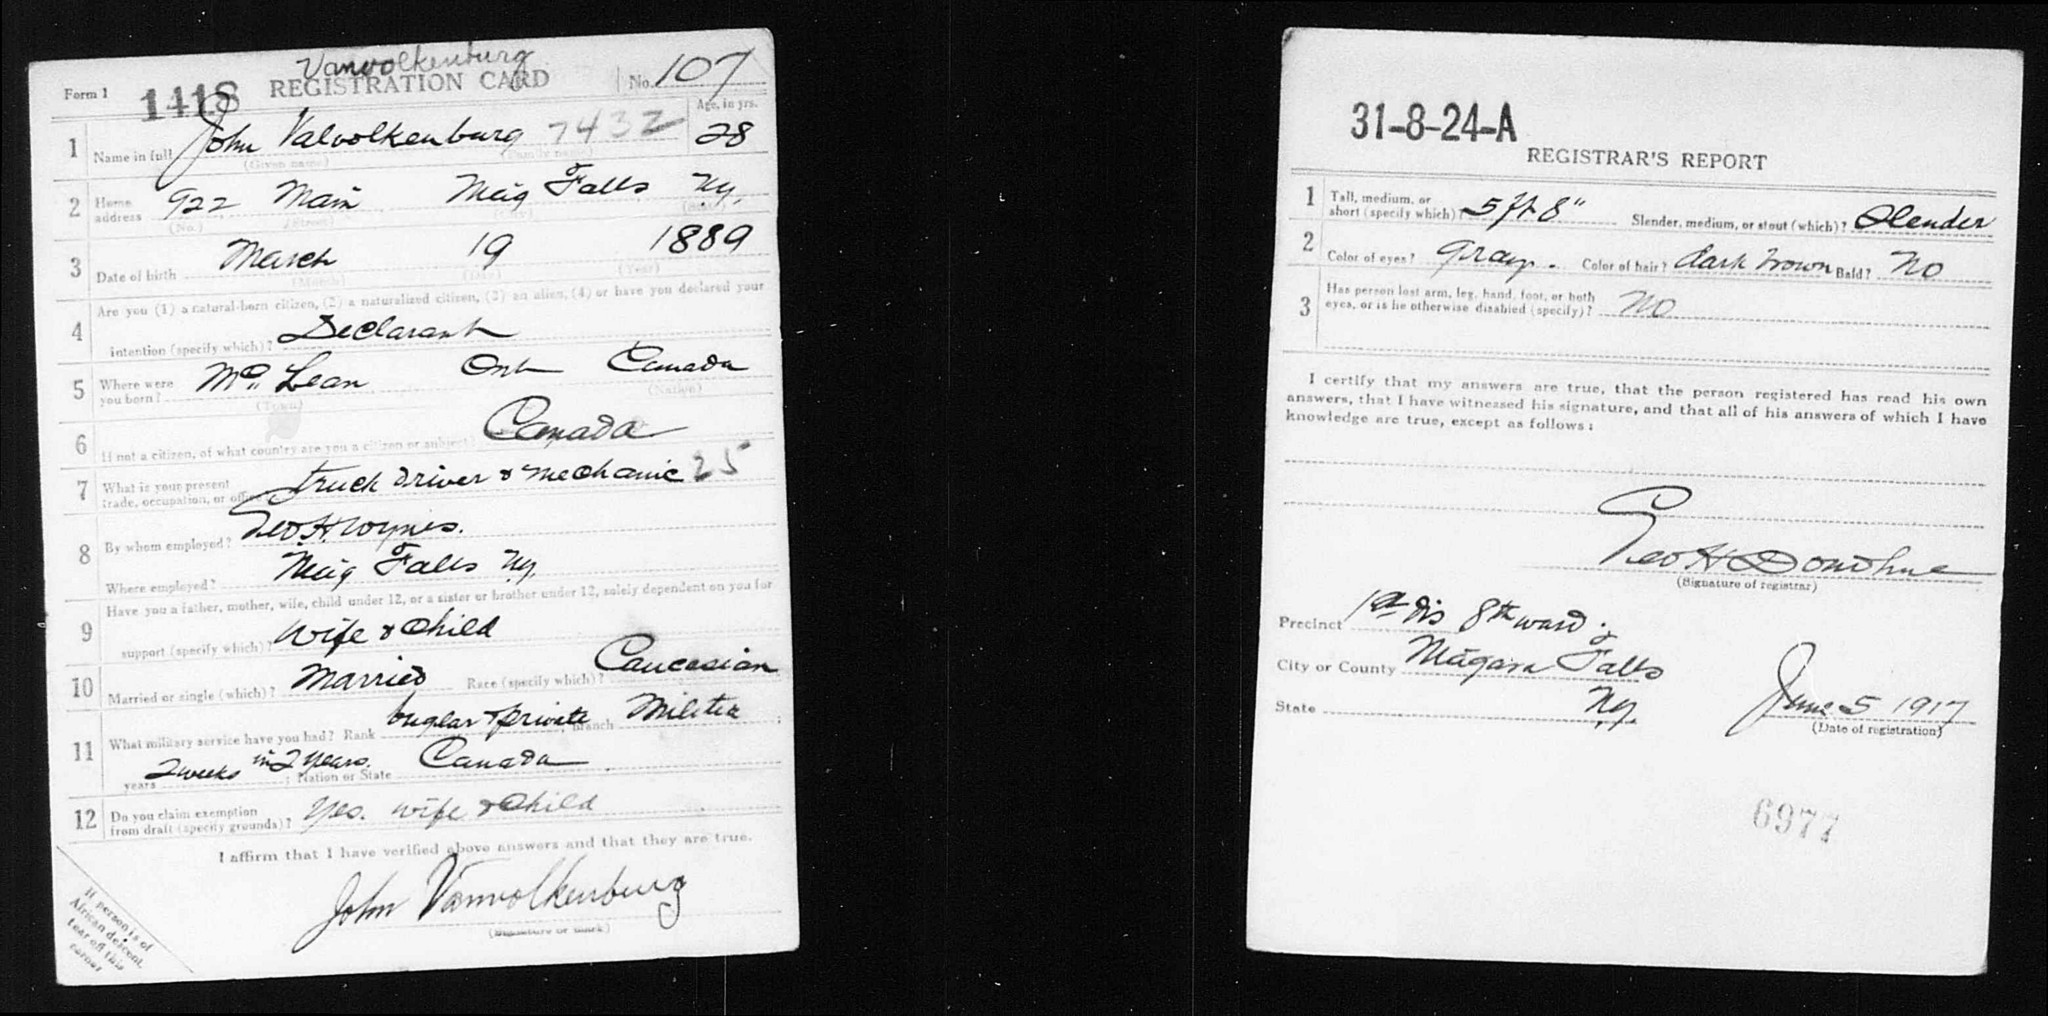 Vanvolkenburg
Form 1 1418 REGISTRATION CARD No. 107
Age, in yrs.
1 Name in full John Valvolkenburg 7432 28
(Given name) (Family name)
2 Home address 922 Main Niag Falls Ny.
(No.) (Street) (City) (State)
3 Date of birth March 19 1889
(Month) (Day) (Year)
Are you (1) a natural-born citizen, (2) a naturalized citizen, (3) an alien, (4) or have you declared your
4 intention (specify which)? Declarant
5 Where were you born? Mc. Lean Ont Canada
(Town) (Nation)
6 If not a citizen, of what country are you a citizen or subject? Canada
7 What is your present trade, occupation, or office? truck driver & mechanic 25
8 By whom employed? Geo. H
Where employed? Niag Falls Ny.
Have you a father, mother, wife, child under 12, or a sister or brother under 12, solely dependent on you for
9 support (specify which)? Wife & Child
10 Married or single (which)? Married Race (specify which)? Caucasian
11 What military service have you had? Rank buglar & private, branch Militia;
years 2 weeks in 2 years.; Nation or State Canada
12 Do you claim exemption from draft (specify grounds)? Yes. wife & Child
I affirm that I have verified above answers and that they are true.
John Vanvolkenburg
(Signature or mark)
If person is of
African descent,
tear off this
corner
31-8-24-A
REGISTRAR'S REPORT
1 Tall, medium, or short (specify which)? 5 ft 8" Slender, medium, or stout (which)? Slender
2 Color of eyes? Gray. Color of hair? dark brown Bald? No
3 Has person lost arm, leg, hand, foot, or both
eyes, or is he otherwise disabled (specify)? No
I certify that my answers are true, that the person registered has read his own
answers, that I have witnessed his signature, and that all of his answers of which I have
knowledge are true, except as follows:
Geo H Donohue
(Signature of registrar)
Precinct 1st dis 8th ward of
City or County Niagara Falls
State Ny. June 5 1917
(Date of registration)
6977